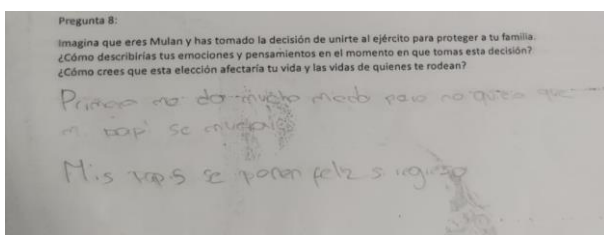 Pregunta 8:
Imagina que eres Mulan y has tomado la decisión de unirte al ejército para proteger a tu familia.
¿Cómo describirías tus emociones y pensamientos en el momento en que tomas esta decisión?
¿Cómo crees que esta elección afectaría tu vida y las vidas de quienes te rodean?
mucho no que
se
Mis se ponen feliz